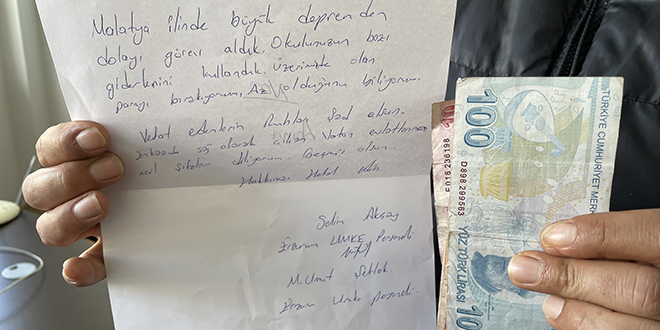 Malatya ilinde büyük depremden
dolayı görev aldık. Okulunuzun bazı
giderlerini kullandık. Üzerimizde olan
parayı bırakıyorum, Az olduğunu biliyorum.
Vefat edenlerin Ruhları Şad olsun.
Enkazda sağ olarak çıkan Vatan evlatlarına
acil şifalar diliyorum. Geçmiş olsun.
Hakkınızı Helal edin.
Selim Aksay
Erzurum UMKE Personeli
M. Umut
Erzurum Umke personeli.
100
E018 236198
D898 299563
TÜRKİYE CUMHURİYET MERK
YÜZ TÜRK LİRASI
10